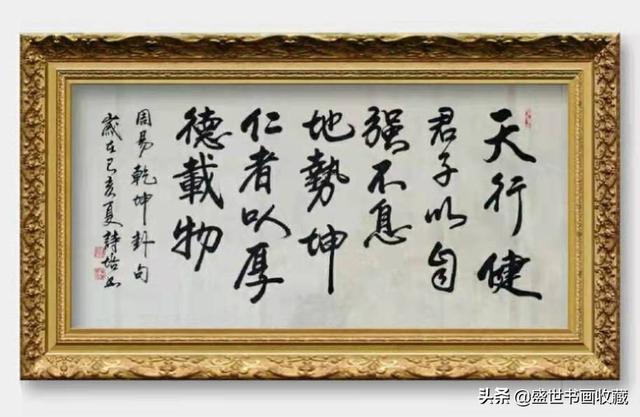 天行健
君子以自
强不息
地勢坤
仁者以厚
德載物
周易乾坤卦句
歲在己亥夏詩培书
头条 @盛世书画收藏